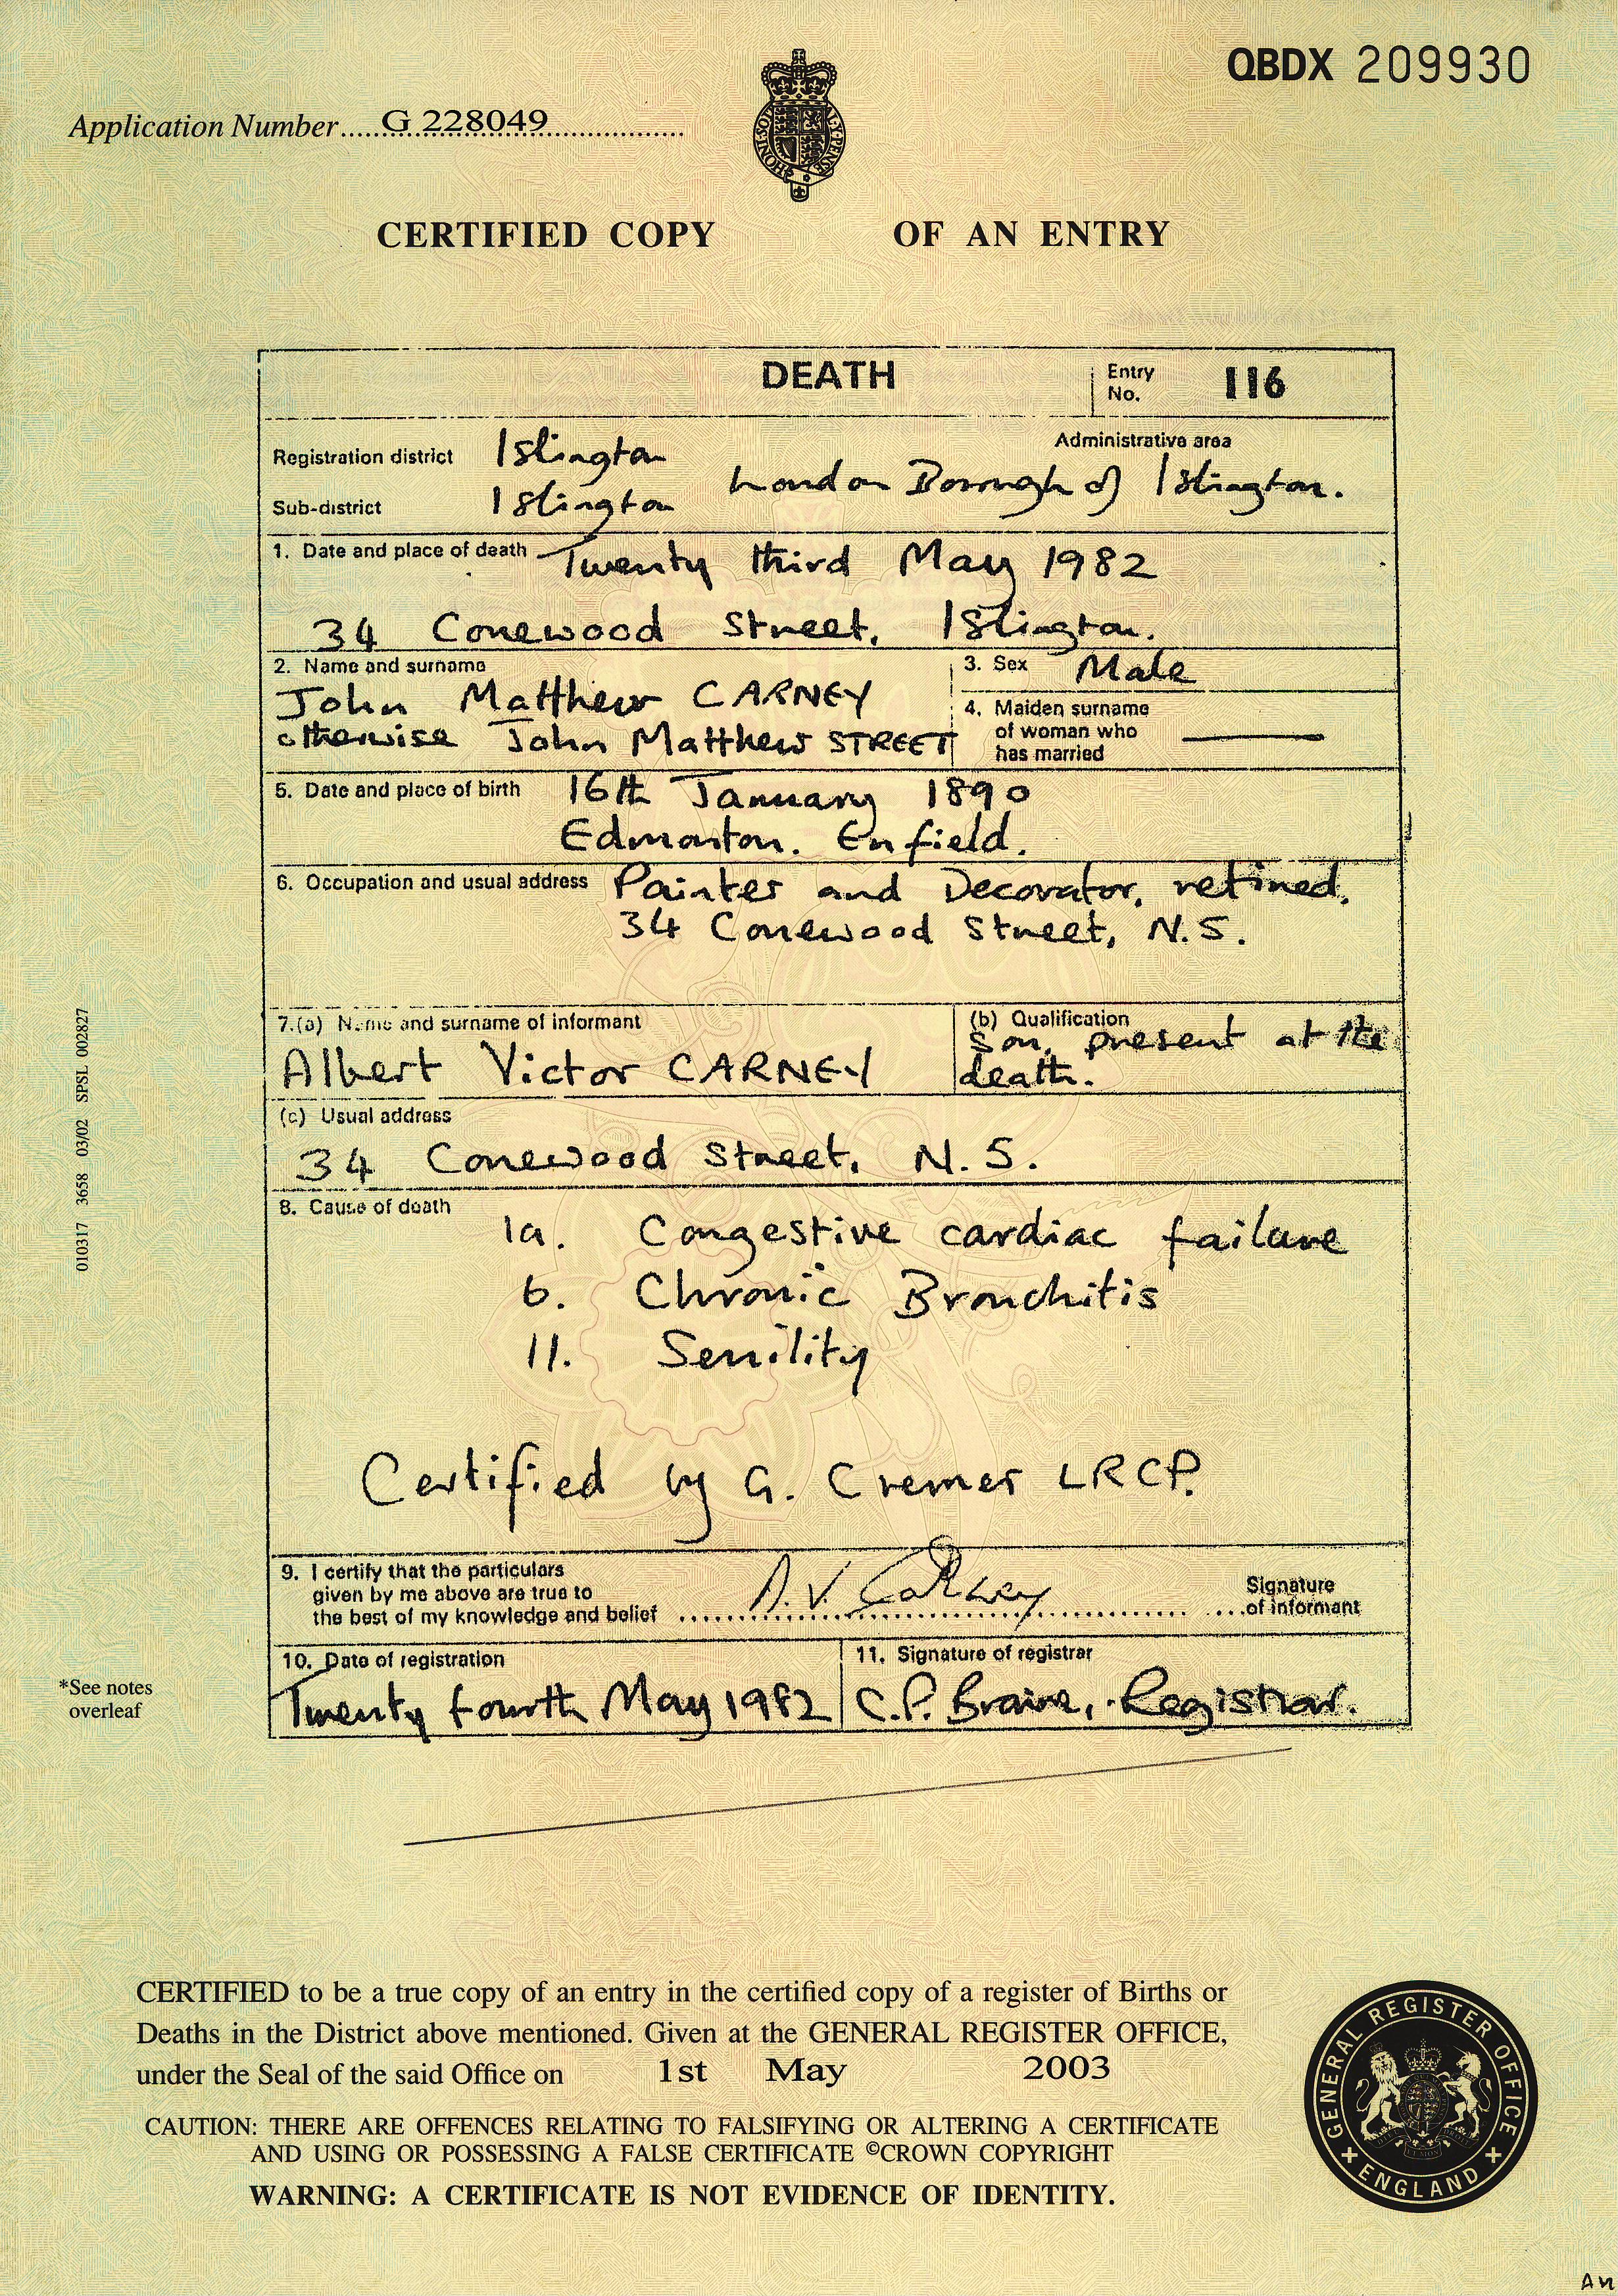 QBDX 209930
Application Number.....G 228049
HONI SOIT Y PENSE
CERTIFIED COPY OF AN ENTRY
DEATH
Entry No. 116
Registration district Islington
Administrative area
London Borough of Islington.
Sub-district Islington
1. Date and place of death Twenty third May 1982
34 Conewood Street, Islington.
2. Name and surname
John Matthew CARNEY
otherwise John Matthew STREET
3. Sex Male
4. Maiden surname
of woman who
has married
5. Date and place of birth 16th January 1890
Edmonton. Enfield.
6. Occupation and usual address Painter and Decorator, retired,
34 Conewood Street, N.5.
7.(a) Name and surname of informant
Albert Victor CARNEY
(b) Qualification
Son, present at the
death.
(c) Usual address
34 Conewood Street, N.5.
8. Cause of death
1a. Congestive cardiac failure
b. Chronic Bronchitis
11. Senility
Certified by G. Cremer LRCP.
9. I certify that the particulars
given by me above are true to
the best of my knowledge and belief
A.V. Carney
Signature
of informant
10. Date of registration
Twenty fourth May 1982
11. Signature of registrar
C.P. Braine, Registrar.
010317 3658 03/02 SPSL 002827
*See notes
overleaf
CERTIFIED to be a true copy of an entry in the certified copy of a register of Births or
Deaths in the District above mentioned. Given at the GENERAL REGISTER OFFICE,
under the Seal of the said Office on 1st May 2003
CAUTION: THERE ARE OFFENCES RELATING TO FALSIFYING OR ALTERING A CERTIFICATE
AND USING OR POSSESSING A FALSE CERTIFICATE ©CROWN COPYRIGHT
WARNING: A CERTIFICATE IS NOT EVIDENCE OF IDENTITY.
GENERAL REGISTER OFFICE
ENGLAND